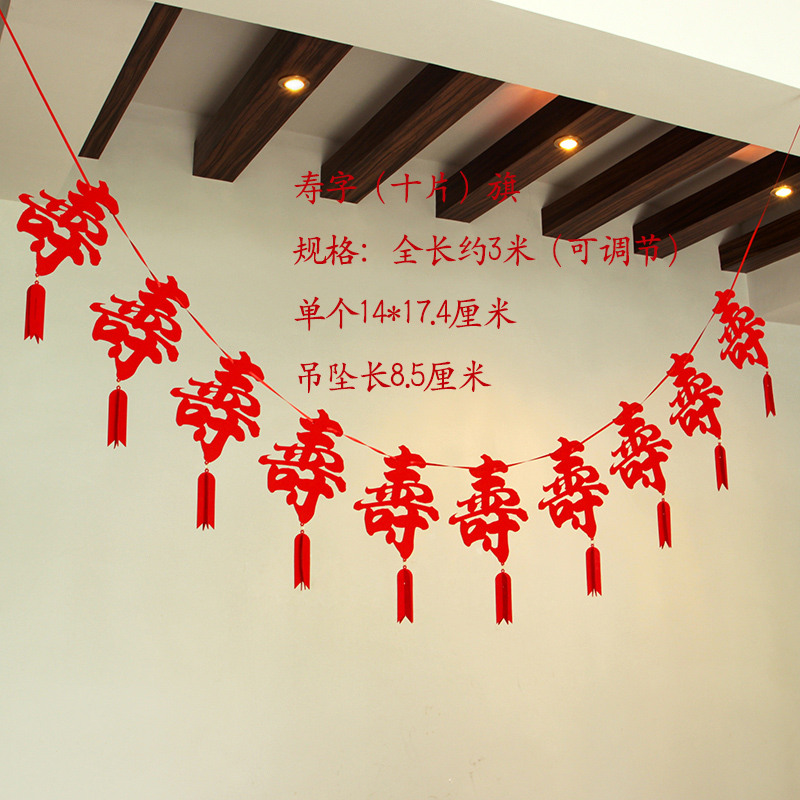 寿字（十片）旗
规格：全长约3米（可调节）
单个14*17.4厘米
吊坠长8.5厘米
壽 壽 壽 壽 壽 壽 壽 壽 壽 壽